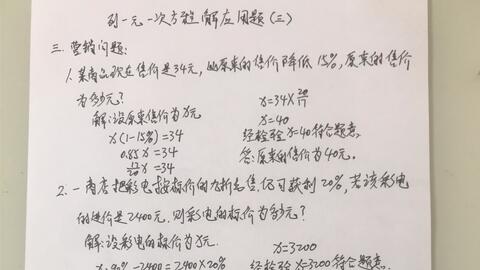 列一元一次方程解应用题(三)
三.营销问题:
1.某商品现在售价是34元,比原来的售价降低15%,原来的售价
为多少元?
解:设原来售价为x元
x(1-15%)=34
0.85x=34
17/20 x=34
x=34×20/17
x=40
经检验x=40符合题意
答:原来的售价为40元。
2.一商店把彩电按标价的九折出售,仍可获利20%,若该彩电
的进价是2400元.则彩电的标价为多少元?
解:设彩电的标价为x元.
x·90%-2400=2400×20%
x=3200
经检验x=3200符合题意.